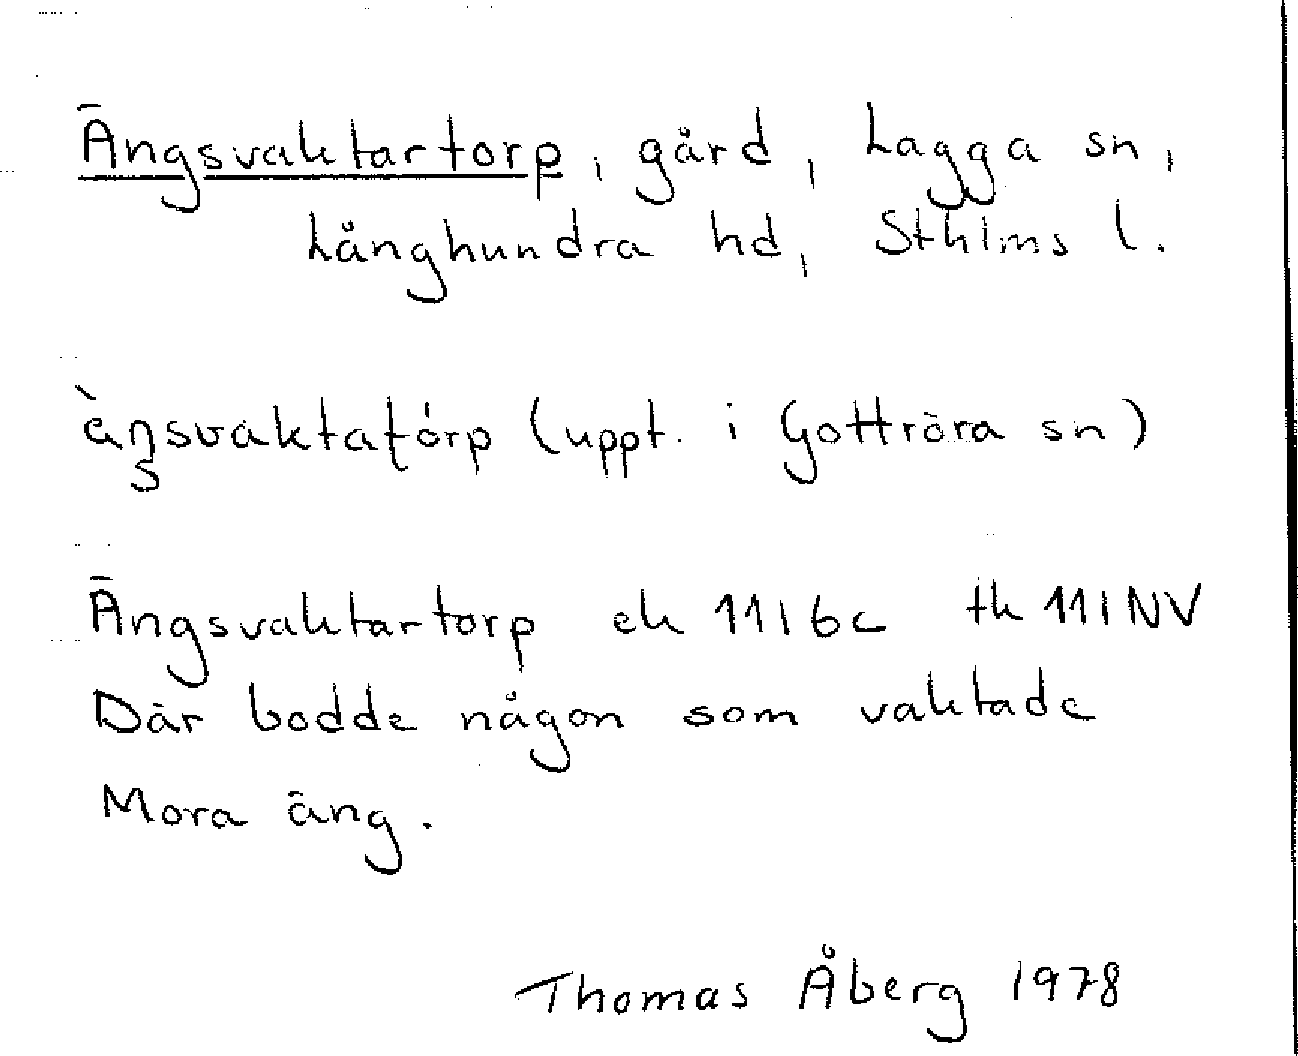 Ängsvaktartorp, gård, Lagga sn,
Långhundra hd, Sthlms l.
(uppt. i Gottröra sn)
Ängsvaktartorp ek 11I6c tk 11INV
Där bodde någon som vaktade
Mora äng.
Thomas Åberg 1978